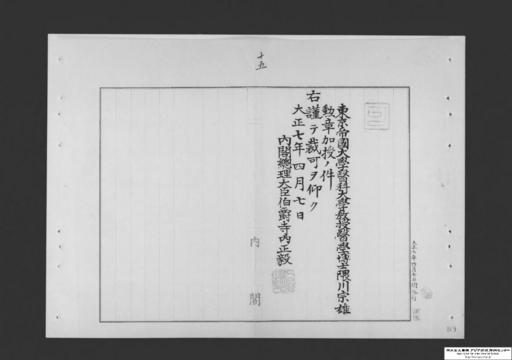 十五
東京帝國大學醫科大學教授醫學博士隈川宗雄
勲章加授ノ件
右謹テ裁可ヲ仰ク
大正七年四月七日
内閣總理大臣伯爵寺内正毅
内閣